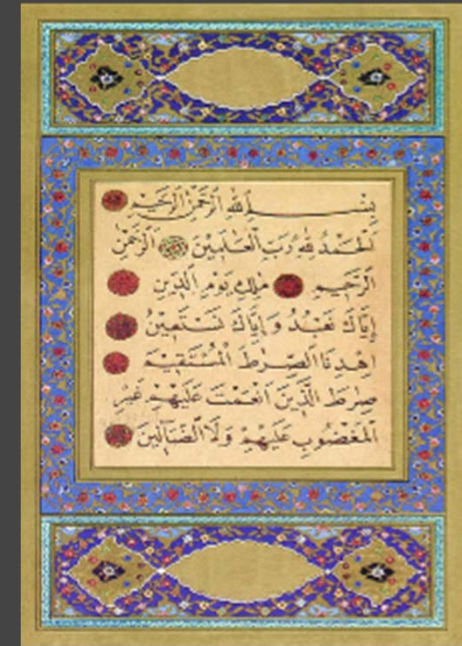 بِسْمِ اللهِ الرَّحْمٰنِ الرَّحِيمِ
اَلْحَمْدُ لِلّٰهِ رَبِّ الْعَالَمِينَ الرَّحْمٰنِ
الرَّحِيمِ مٰلِكِ يَوْمِ الدِّينِ
إِيَّاكَ نَعْبُدُ وَإِيَّاكَ نَسْتَعِينُ
اِهْدِنَا الصِّرَاطَ الْمُسْتَقِيمَ
صِرَاطَ الَّذِينَ اَنْعَمْتَ عَلَيْهِمْ غَيْرِ
الْمَغْضُوبِ عَلَيْهِمْ وَلَا الضَّالِّينَ